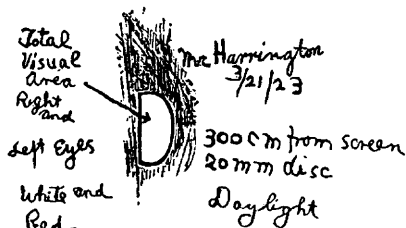 Total
Visual
Area
Right and
Left Eyes
White and
Red
Mr Harrington
3/21/23
300 cm from screen
20 mm disc
Daylight